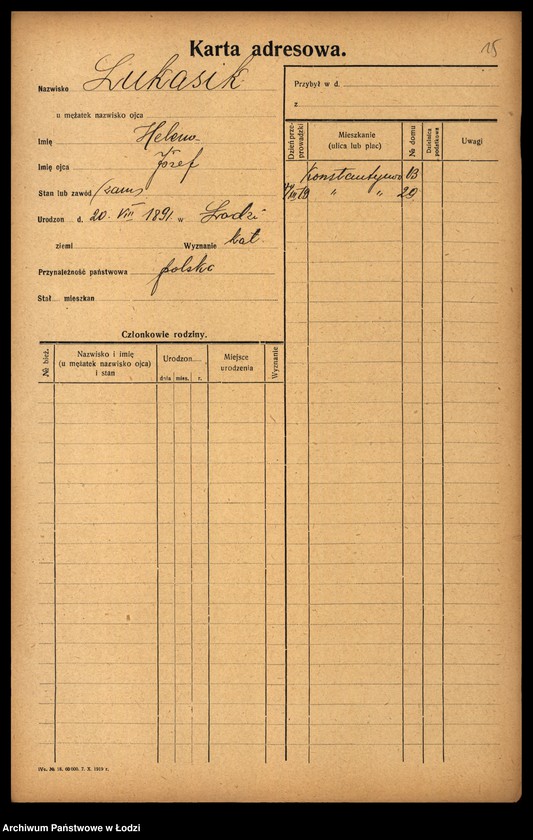 15
Karta adresowa.
Nazwisko Łukasik
u mężatek nazwisko ojca
Imię Helena
Imię ojca Józef
Stan lub zawód
Urodzon d. 20. VIII 1891 w Łodzi
ziemi Wyznanie kat.
Przynależność państwowa polska
Stał mieszkan
Przybył w d.
z
Dzień przeprowadzki Mieszkanie (ulica lub plac) № domu Dzielnica podatkowa Uwagi
13
" " 20
Członkowie rodziny.
№ bież. Nazwisko i imię (u mężatek nazwisko ojca) i stan Urodzon Miejsce urodzenia Wyznanie
dnia mies. r.
Archiwum Państwowe w Łodzi